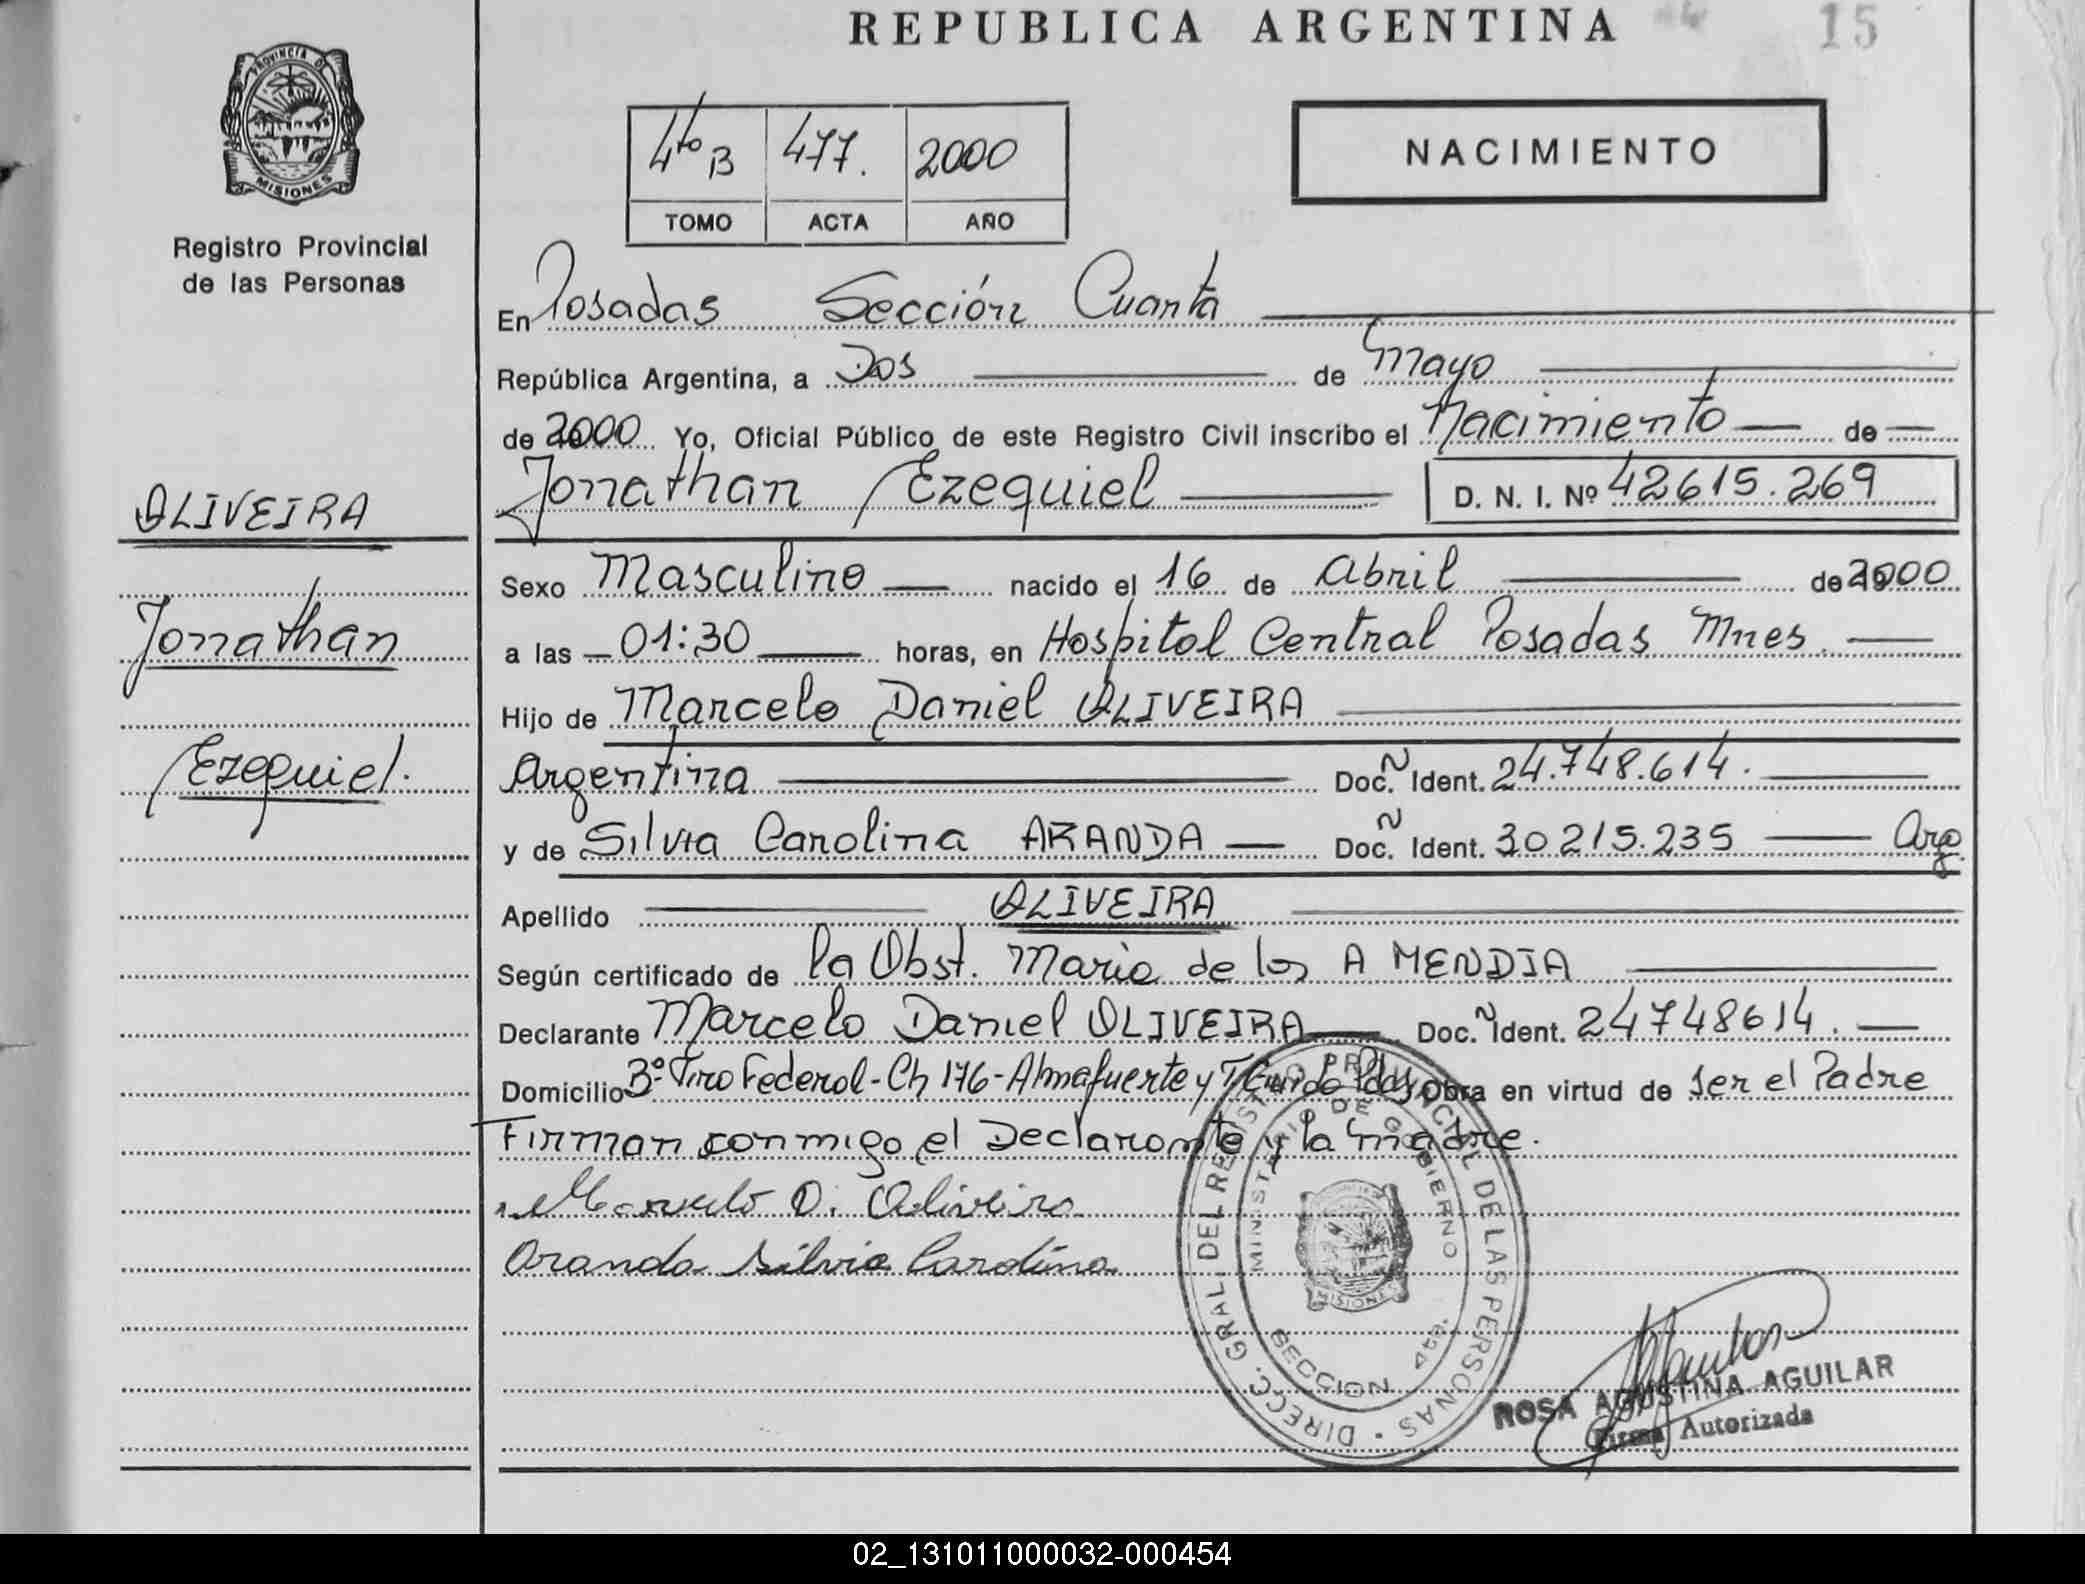 REPUBLICA ARGENTINA
15
PROVINCIA D
MISIONES
Registro Provincial
de las Personas
4to B 477. 2000
TOMO ACTA AÑO
NACIMIENTO
En Posadas Sección Cuarta
República Argentina, a Dos de Mayo
de 2000 Yo, Oficial Público de este Registro Civil inscribo el Nacimiento de
Jonathan Ezequiel D. N. I. Nº 42615.269
OLIVEIRA
Jonathan
Ezequiel.
Sexo Masculino nacido el 16 de Abril de 2000
a las 01:30 horas, en Hospital Central Posadas Mnes.
Hijo de Marcelo Daniel OLIVEIRA
Argentina Doc. N Ident. 24.748.614.
y de Silvia Carolina ARANDA Doc. N Ident. 30215.235 Arg.
Apellido OLIVEIRA
Según certificado de la Obst. Maria de los A MENDIA
Declarante Marcelo Daniel OLIVEIRA Doc. N Ident. 24748614.
Domicilio Bº Tiro Federal - Ch 176 - Almafuerte y T Guido Pdas Obra en virtud de ser el Padre
Firman conmigo el Declarante y la Madre.
Marcelo D. Oliveira
Aranda Silvia Carolina
DIRECC. GRAL. DEL REGISTRO PROVINCIAL DE LAS PERSONAS
MINISTERIO DE GOBIERNO
MISIONES
SECCION 4ta.
ROSA AGUSTINA AGUILAR
Firma Autorizada
02_131011000032-000454